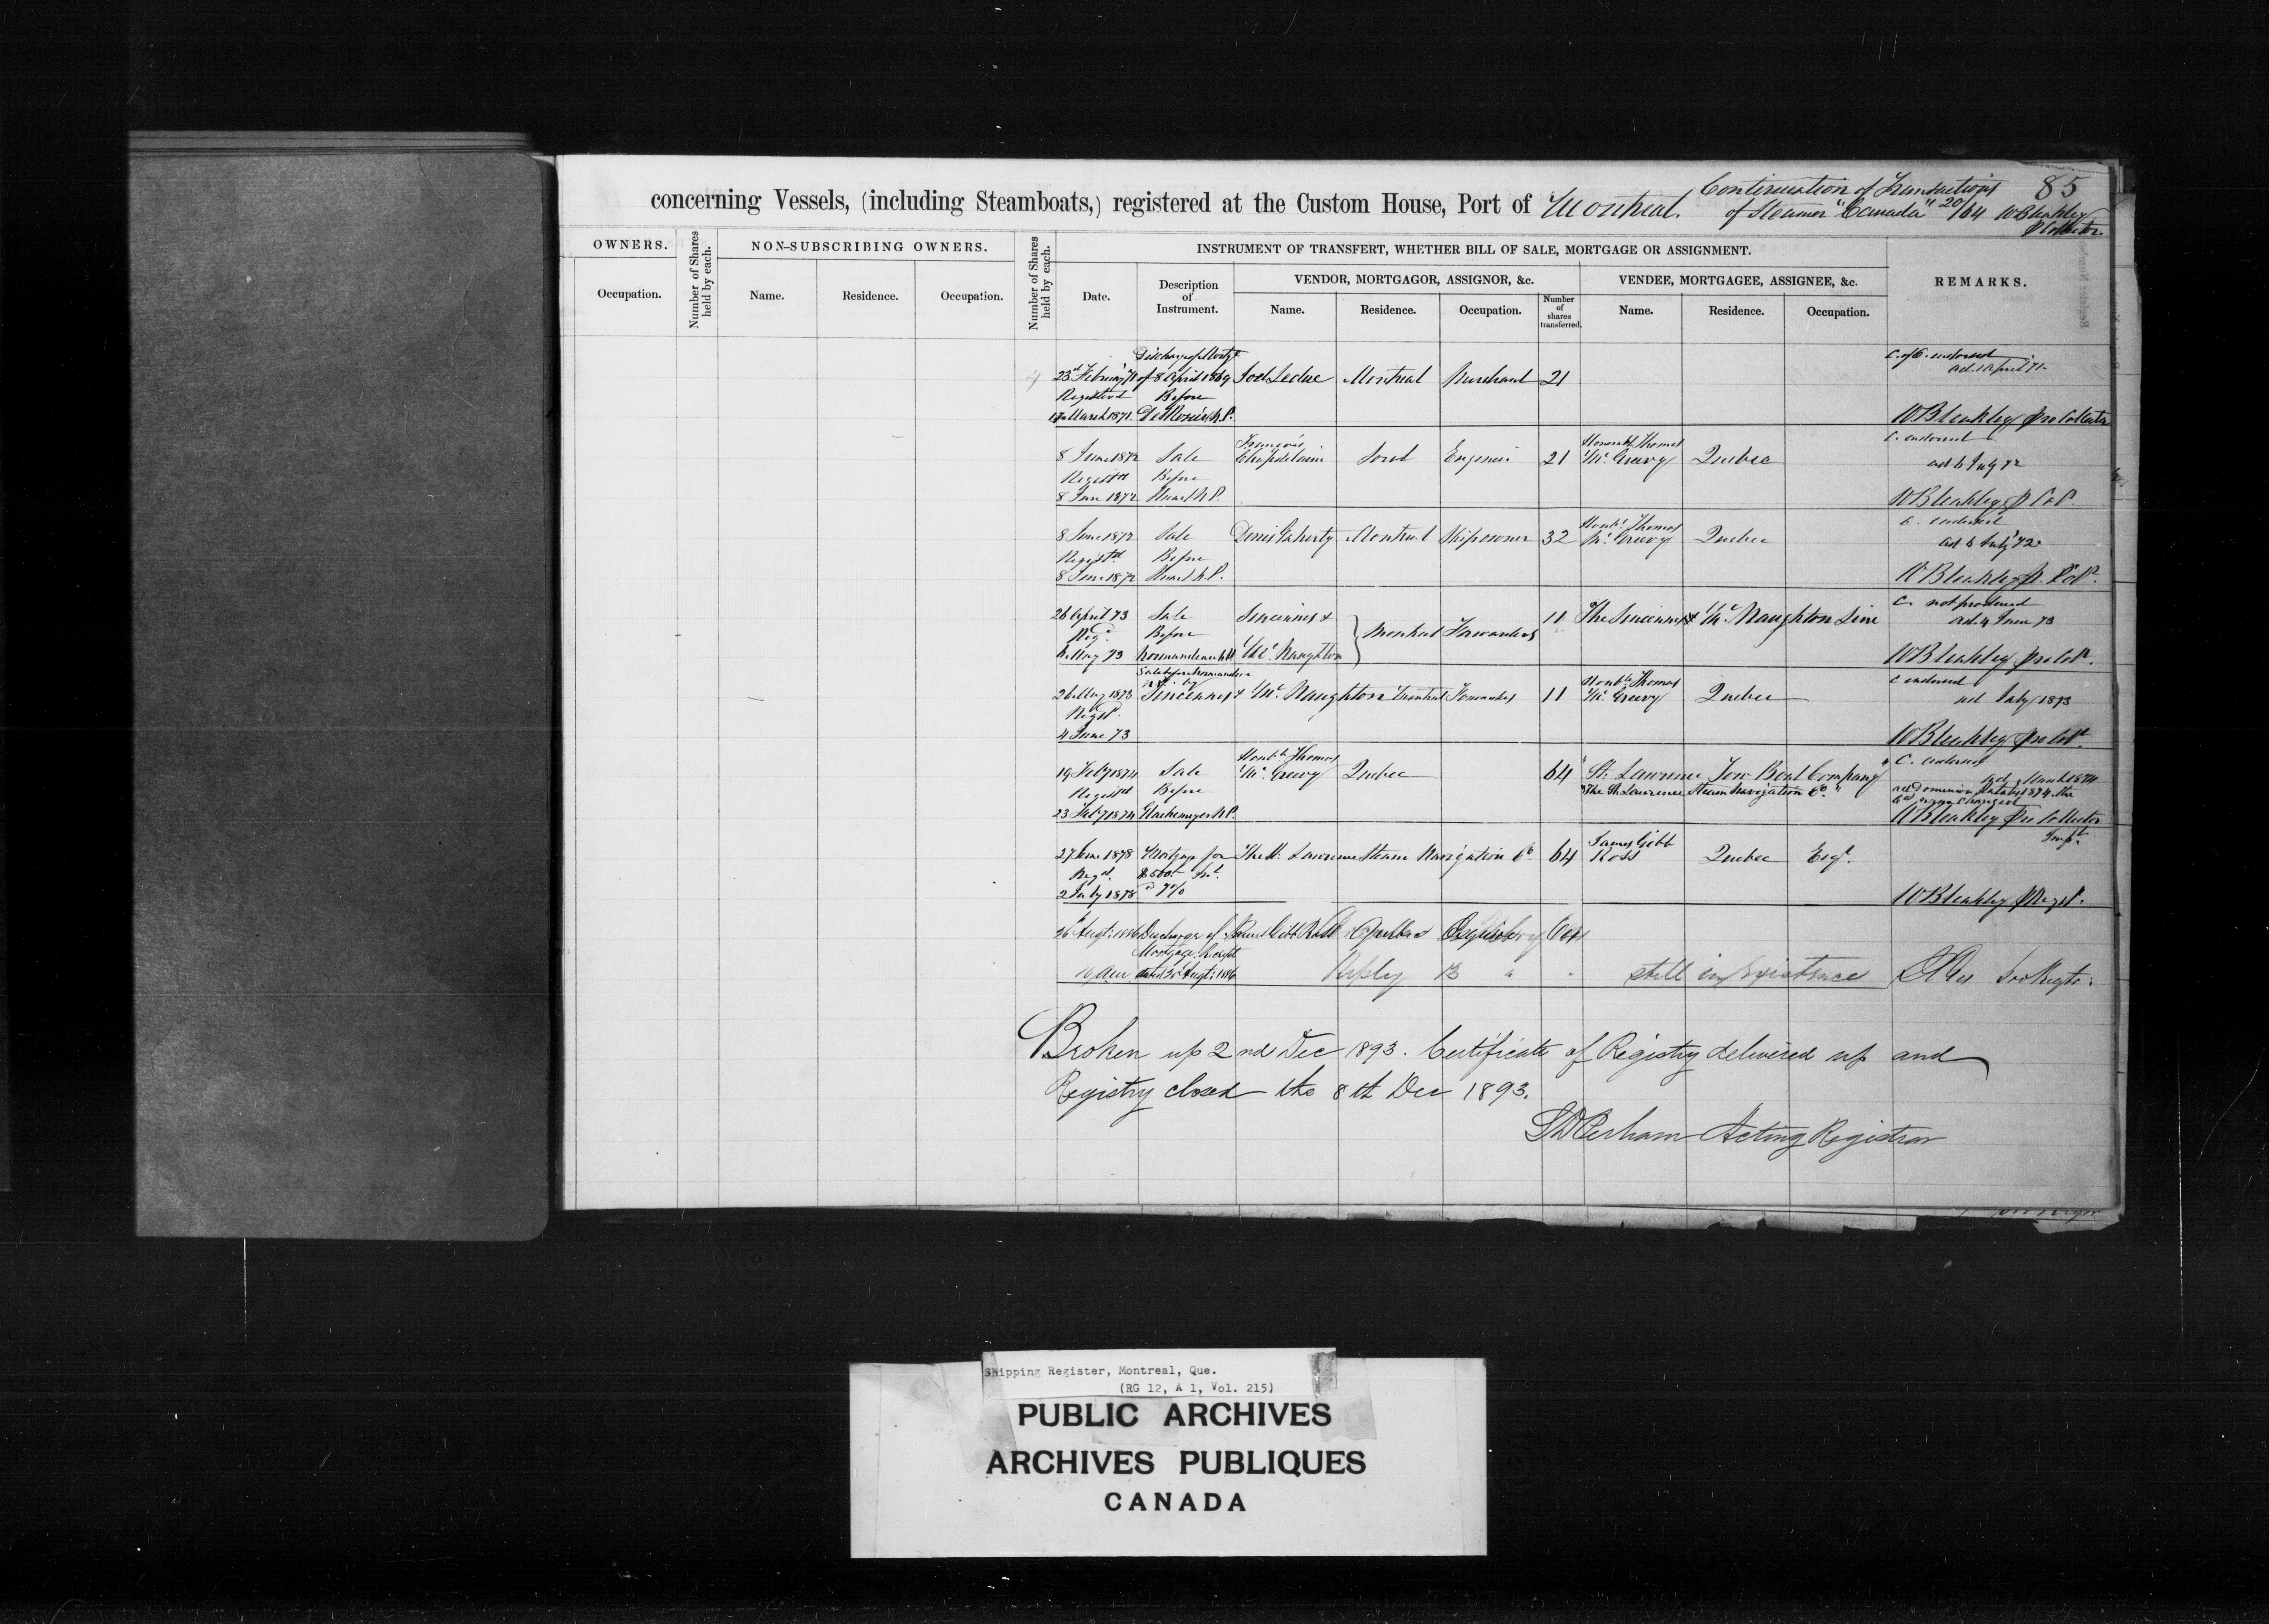 concerning Vessels, (including Steamboats,) registered at the Custom House, Port of Montreal.
Continuation of Transactions 85
of Steamer "Canada" 20/64 WBleakley
p Collector.
OWNERS.
Number of Shares held by each.
NON-SUBSCRIBING OWNERS.
Number of Shares held by each.
INSTRUMENT OF TRANSFERT, WHETHER BILL OF SALE, MORTGAGE OR ASSIGNMENT.
REMARKS.
Occupation.
Name. Residence. Occupation.
Date. Description of Instrument.
VENDOR, MORTGAGOR, ASSIGNOR, &c.
Name. Residence. Occupation.
Number of shares transferred.
VENDEE, MORTGAGEE, ASSIGNEE, &c.
Name. Residence. Occupation.
Discharge of Mortge C. of O. endorsed
4 23rd February 71 of 8 April 1869 Joel Leduc Montreal Merchant 21 ad. 1 April 71.
Registered Before
17 March 1871. N.P. WBleakley pro Collector
François Honorable Thomas C. endorsed
8 June 1872 Sale Chapdelaine Sorel Engineer 21 McGreevy Quebec ad 6 July 72
Registd Before
8 June 1872 Huart N.P. WBleakley p Col.
Honble Thomas C. endorsed
8 June 1872 Sale Denis Gaherty Montreal Shipowner 32 McGreevy Quebec ad 6 July 72
Registd. Before
8 June 1872 Huart N.P. WBleakley p. Col.
26 April 73 Sale Sincennes & 11 The Sincennes & McNaughton Line C. not produced
Regd. Before Montreal Forwarders ad. 4 June 73
6 May 73 Normandeau N.P. McNaughton WBleakley pro Colr.
Sale before Normandeau N.P. by Honble Thomas C endorsed
26 May 1873 Sincennes & McNaughton Montreal Forwarders 11 McGreevy Quebec ad July 1873
Regd.
4 June 73 WBleakley pro Colr.
Honble Thomas C. endorsed
19 Feby 1874 Sale McGreevy Quebec 64 "St. Lawrence Tow Boat Company" ad March 1874
Registd Before "The St. Lawrence Steam Navigation Co." act Dominion Statutes 1874 the
Co. name changed
23 Feby 1874 Glackemeyer N.P. WBleakley Pro Collector
James Gibb
27 June 1878 Mortgage for The St. Lawrence Steam Navigation Co 64 Ross Quebec Esqr.
Regd. Int.
2 July 1878 @ 7% WBleakley p Regr.
26 Augt. 1886 Discharge of James Gibb Ross Quebec
Mortgage Receipt
10 am dated Augt: 1886 B " " still in existence
Broken up 2nd Dec 1893. Certificate of Registry delivered up and
Registry closed the 8th Dec 1893.
Acting Registrar
Shipping Register, Montreal, Que.
(RG 12, A 1, Vol. 215)
PUBLIC ARCHIVES
ARCHIVES PUBLIQUES
CANADA